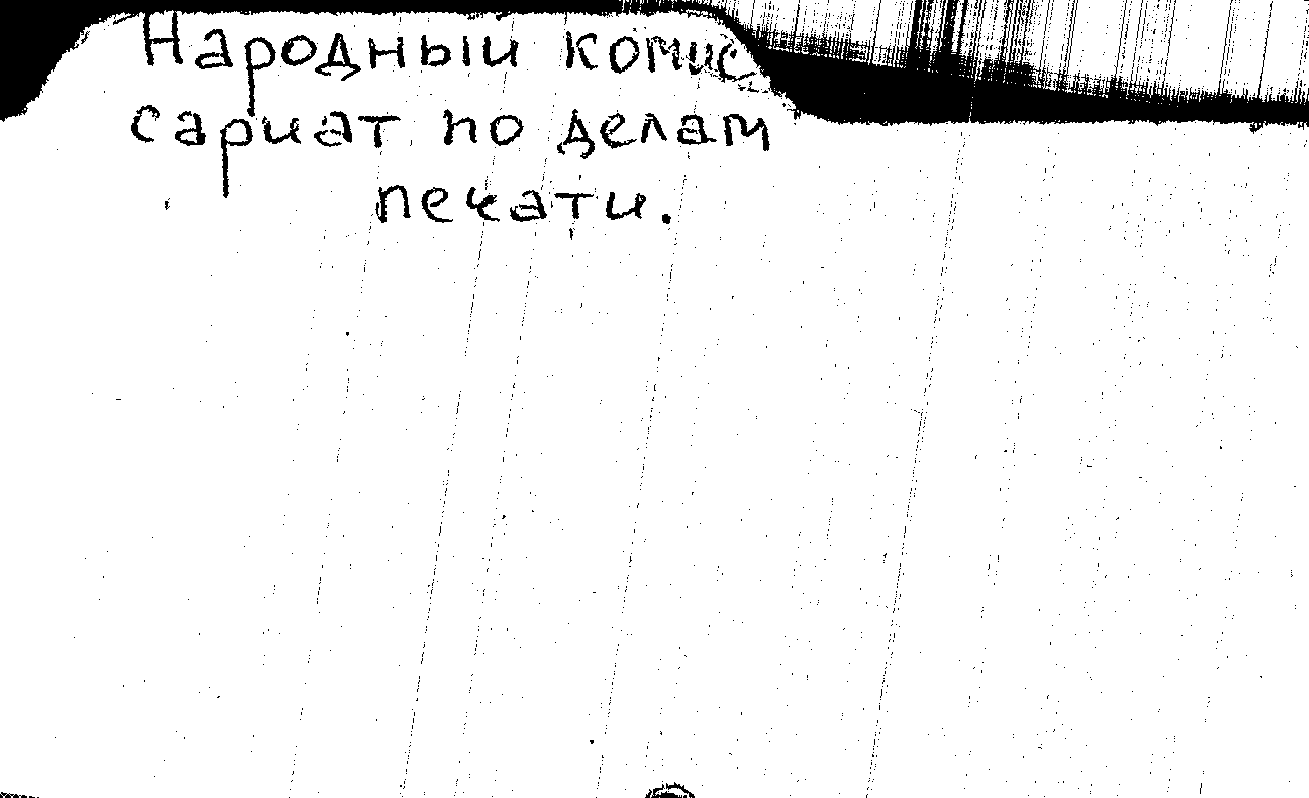 Народный комис
сариат по делам
печати.